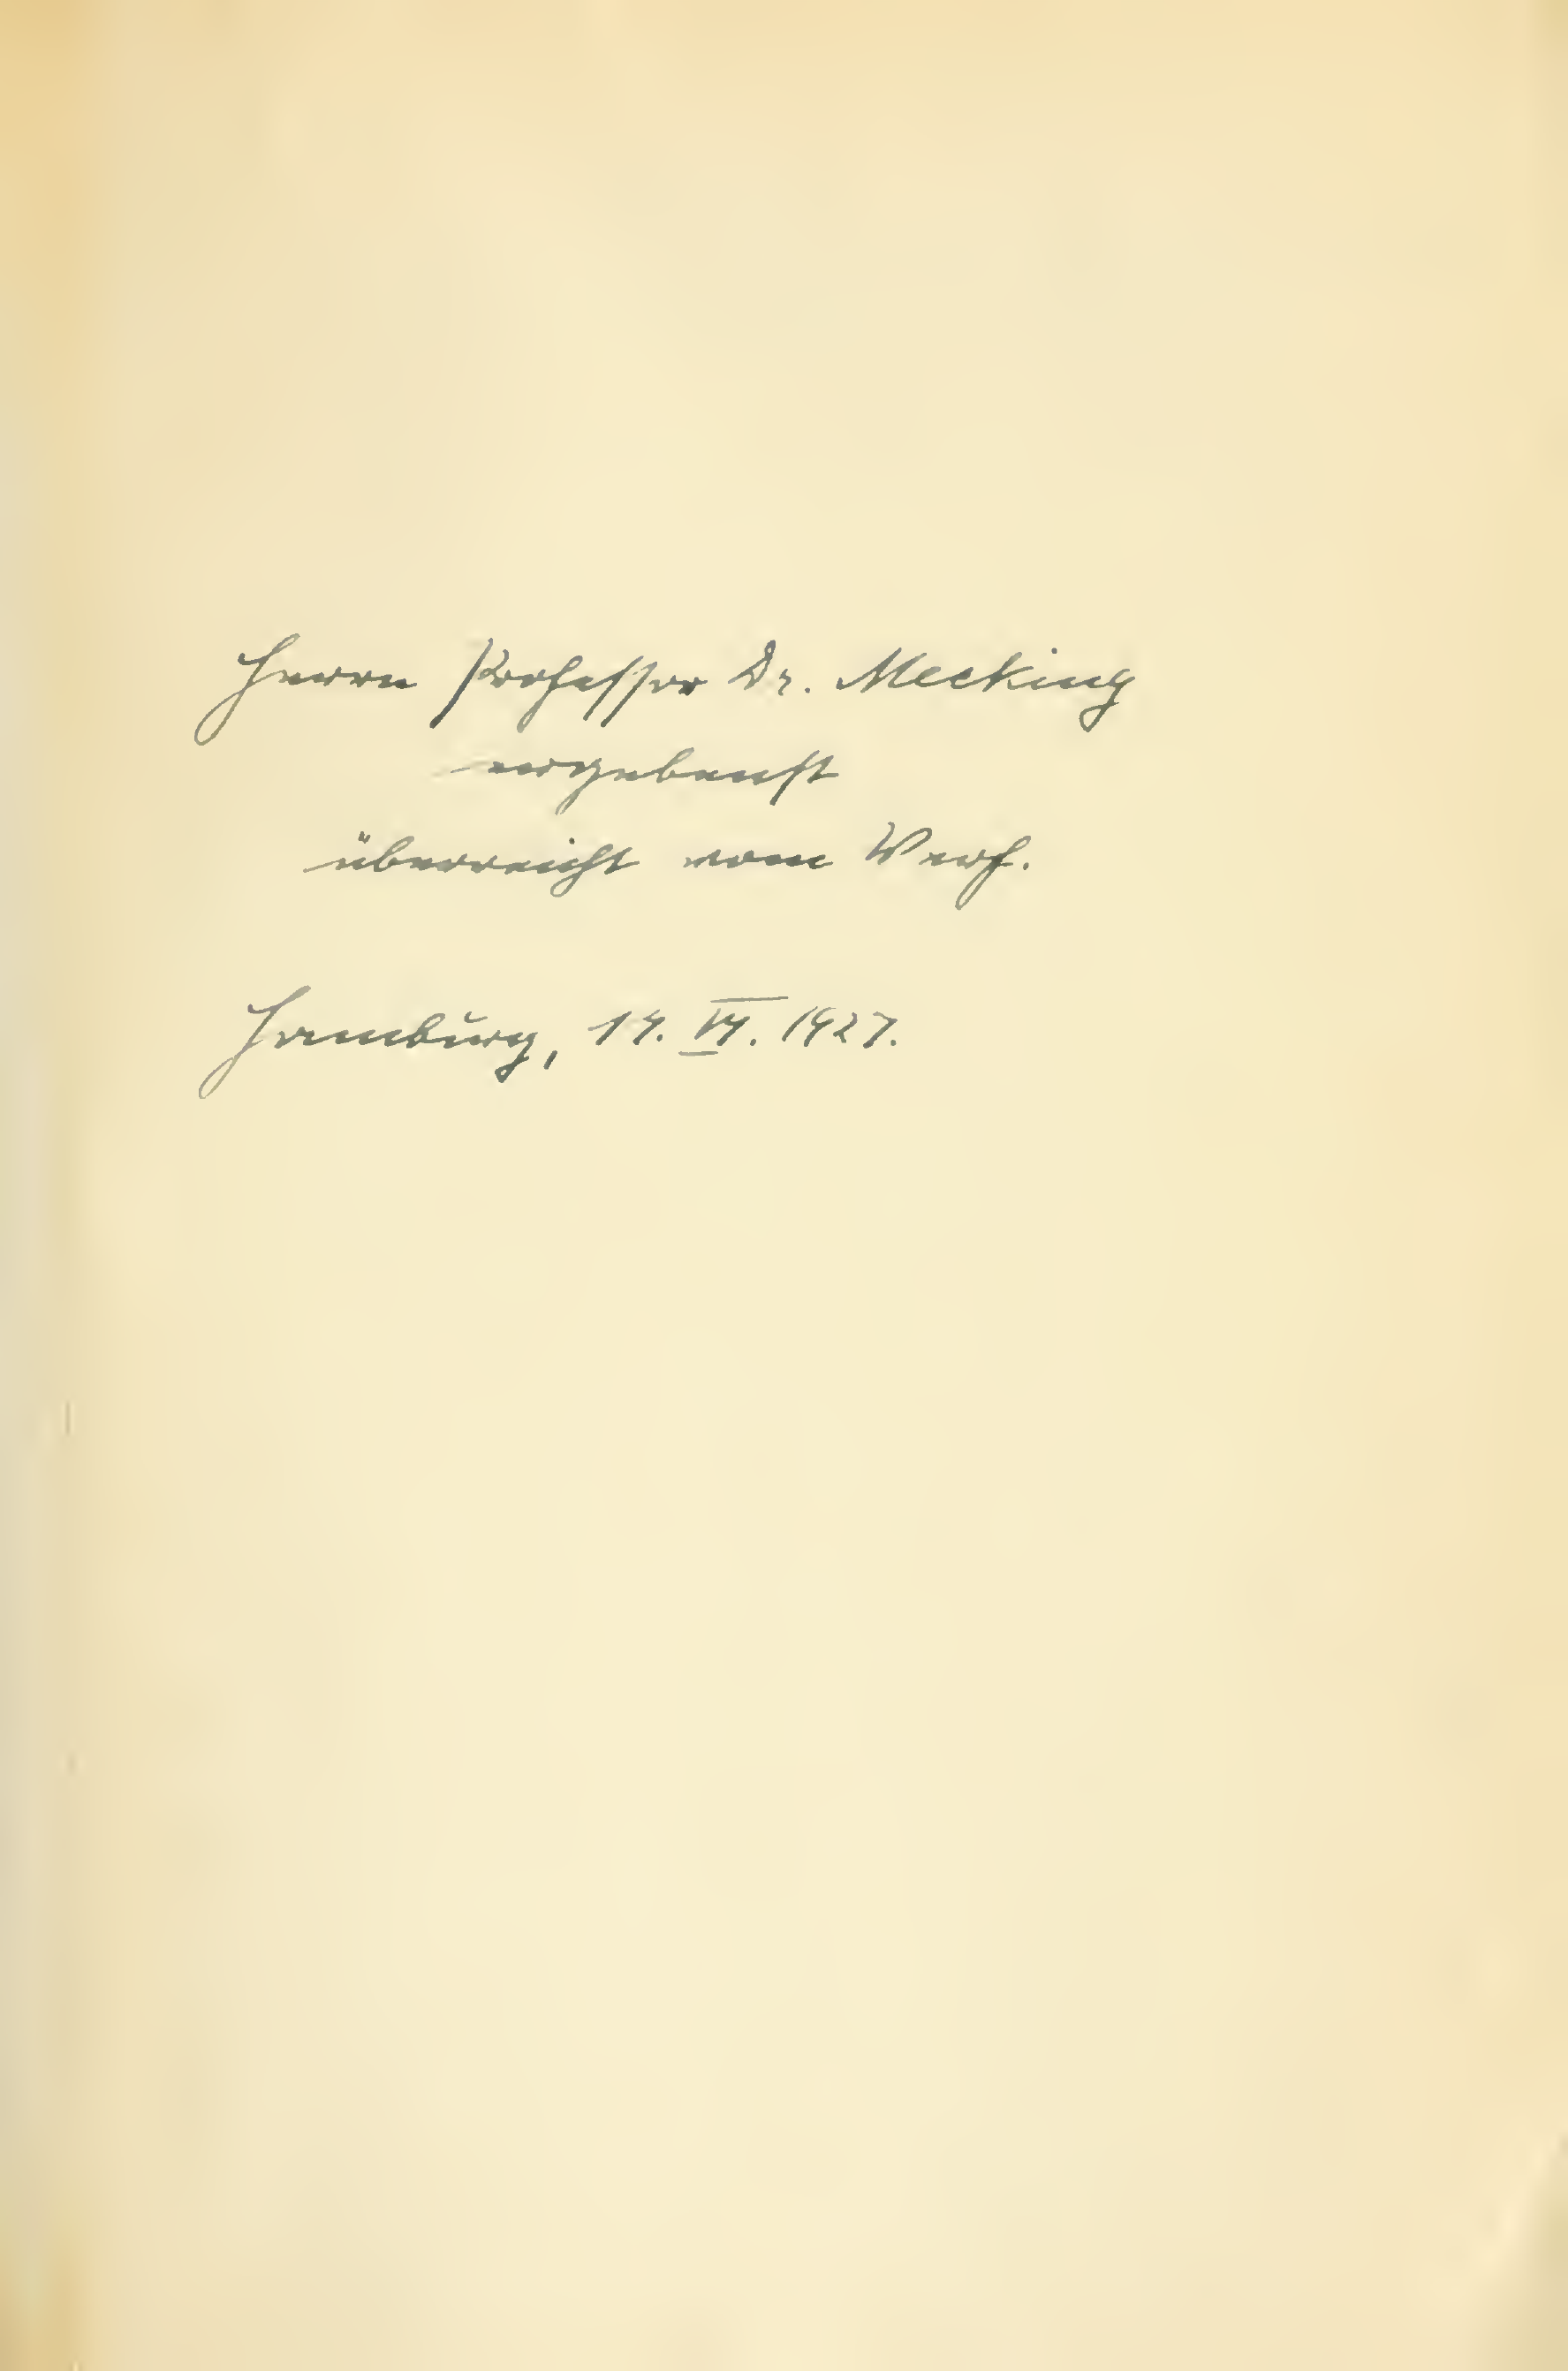 Herrn Professor Dr. Mecking
ergebenst
überreicht vom Verf.
Hamburg, 14. VI. 1927.